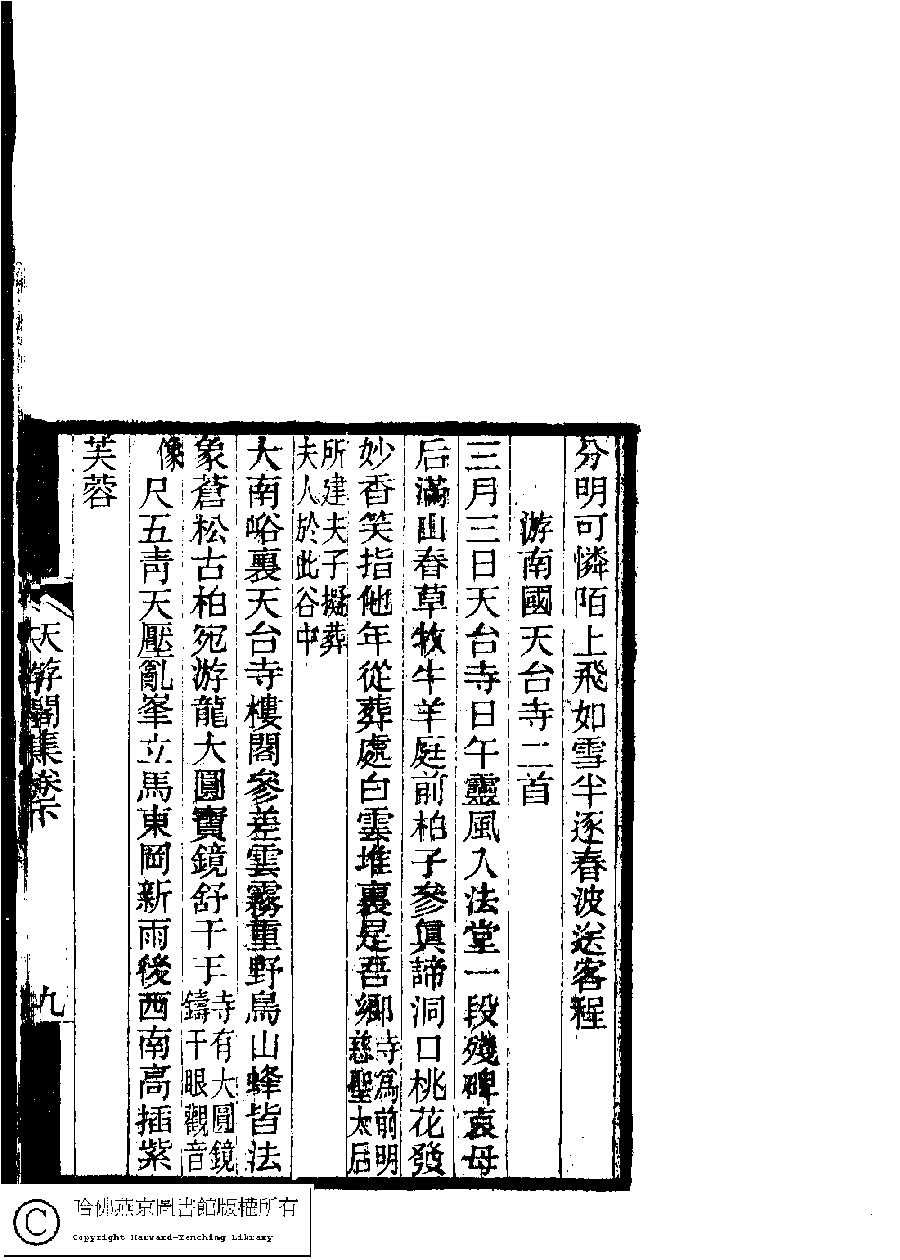 分明可憐陌上飛如雪半逐春波送客程
游南國天台寺二首
三月三日天台寺日午靈風入法堂一段殘碑哀母
后滿山春草牧牛羊庭前柏子參眞諦洞口桃花發
妙香笑指他年從葬處白雲堆裏是吾鄉寺爲前明
慈聖太后
所建夫子擬葬
夫人於此谷中
大南峪裏天台寺樓閣參差雲霧重野鳥山蜂皆法
象蒼松古柏宛游龍大圓寶鏡舒千手寺有大圓鏡
鑄千眼觀音
像尺五靑天壓亂峯立馬東岡新雨後西南高插紫
芙蓉
天游閣集卷下
九
哈佛燕京圖書館版權所有
Copyright Harvard-Yenching Library